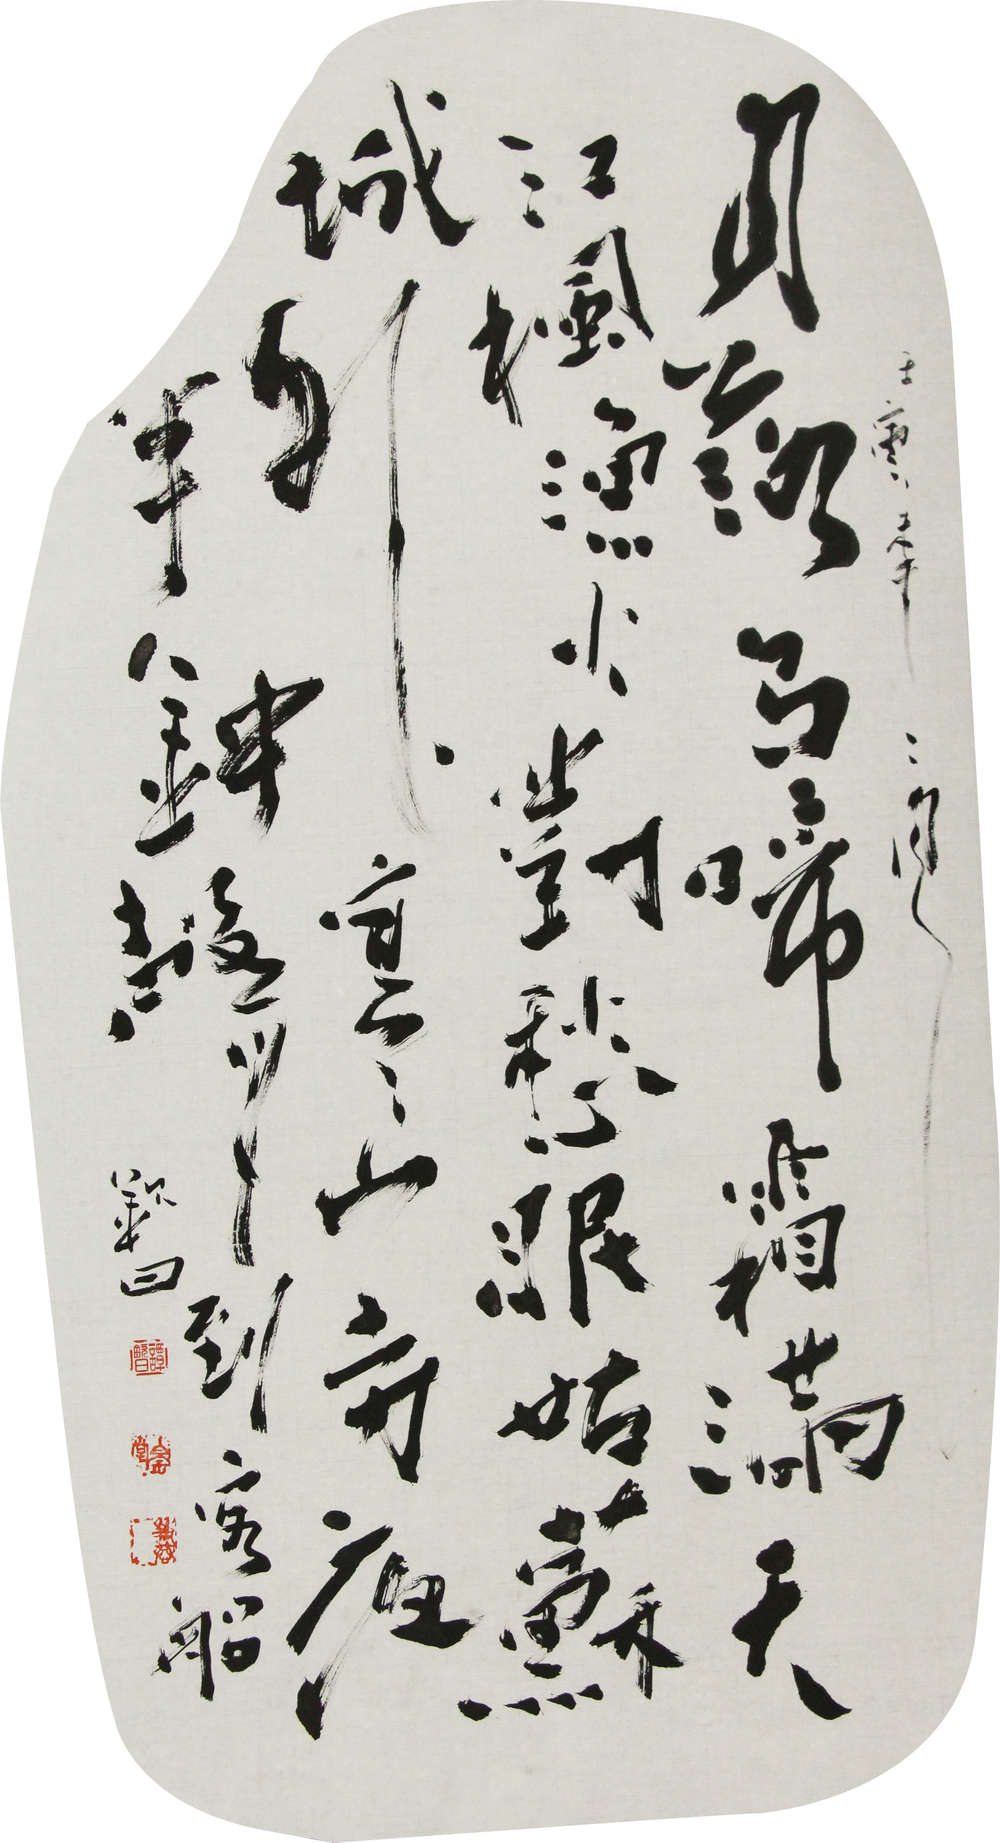 壬寅
月落烏啼霜滿天
江楓漁火對愁眠姑蘇
城外寒山寺夜
半鐘聲到客船